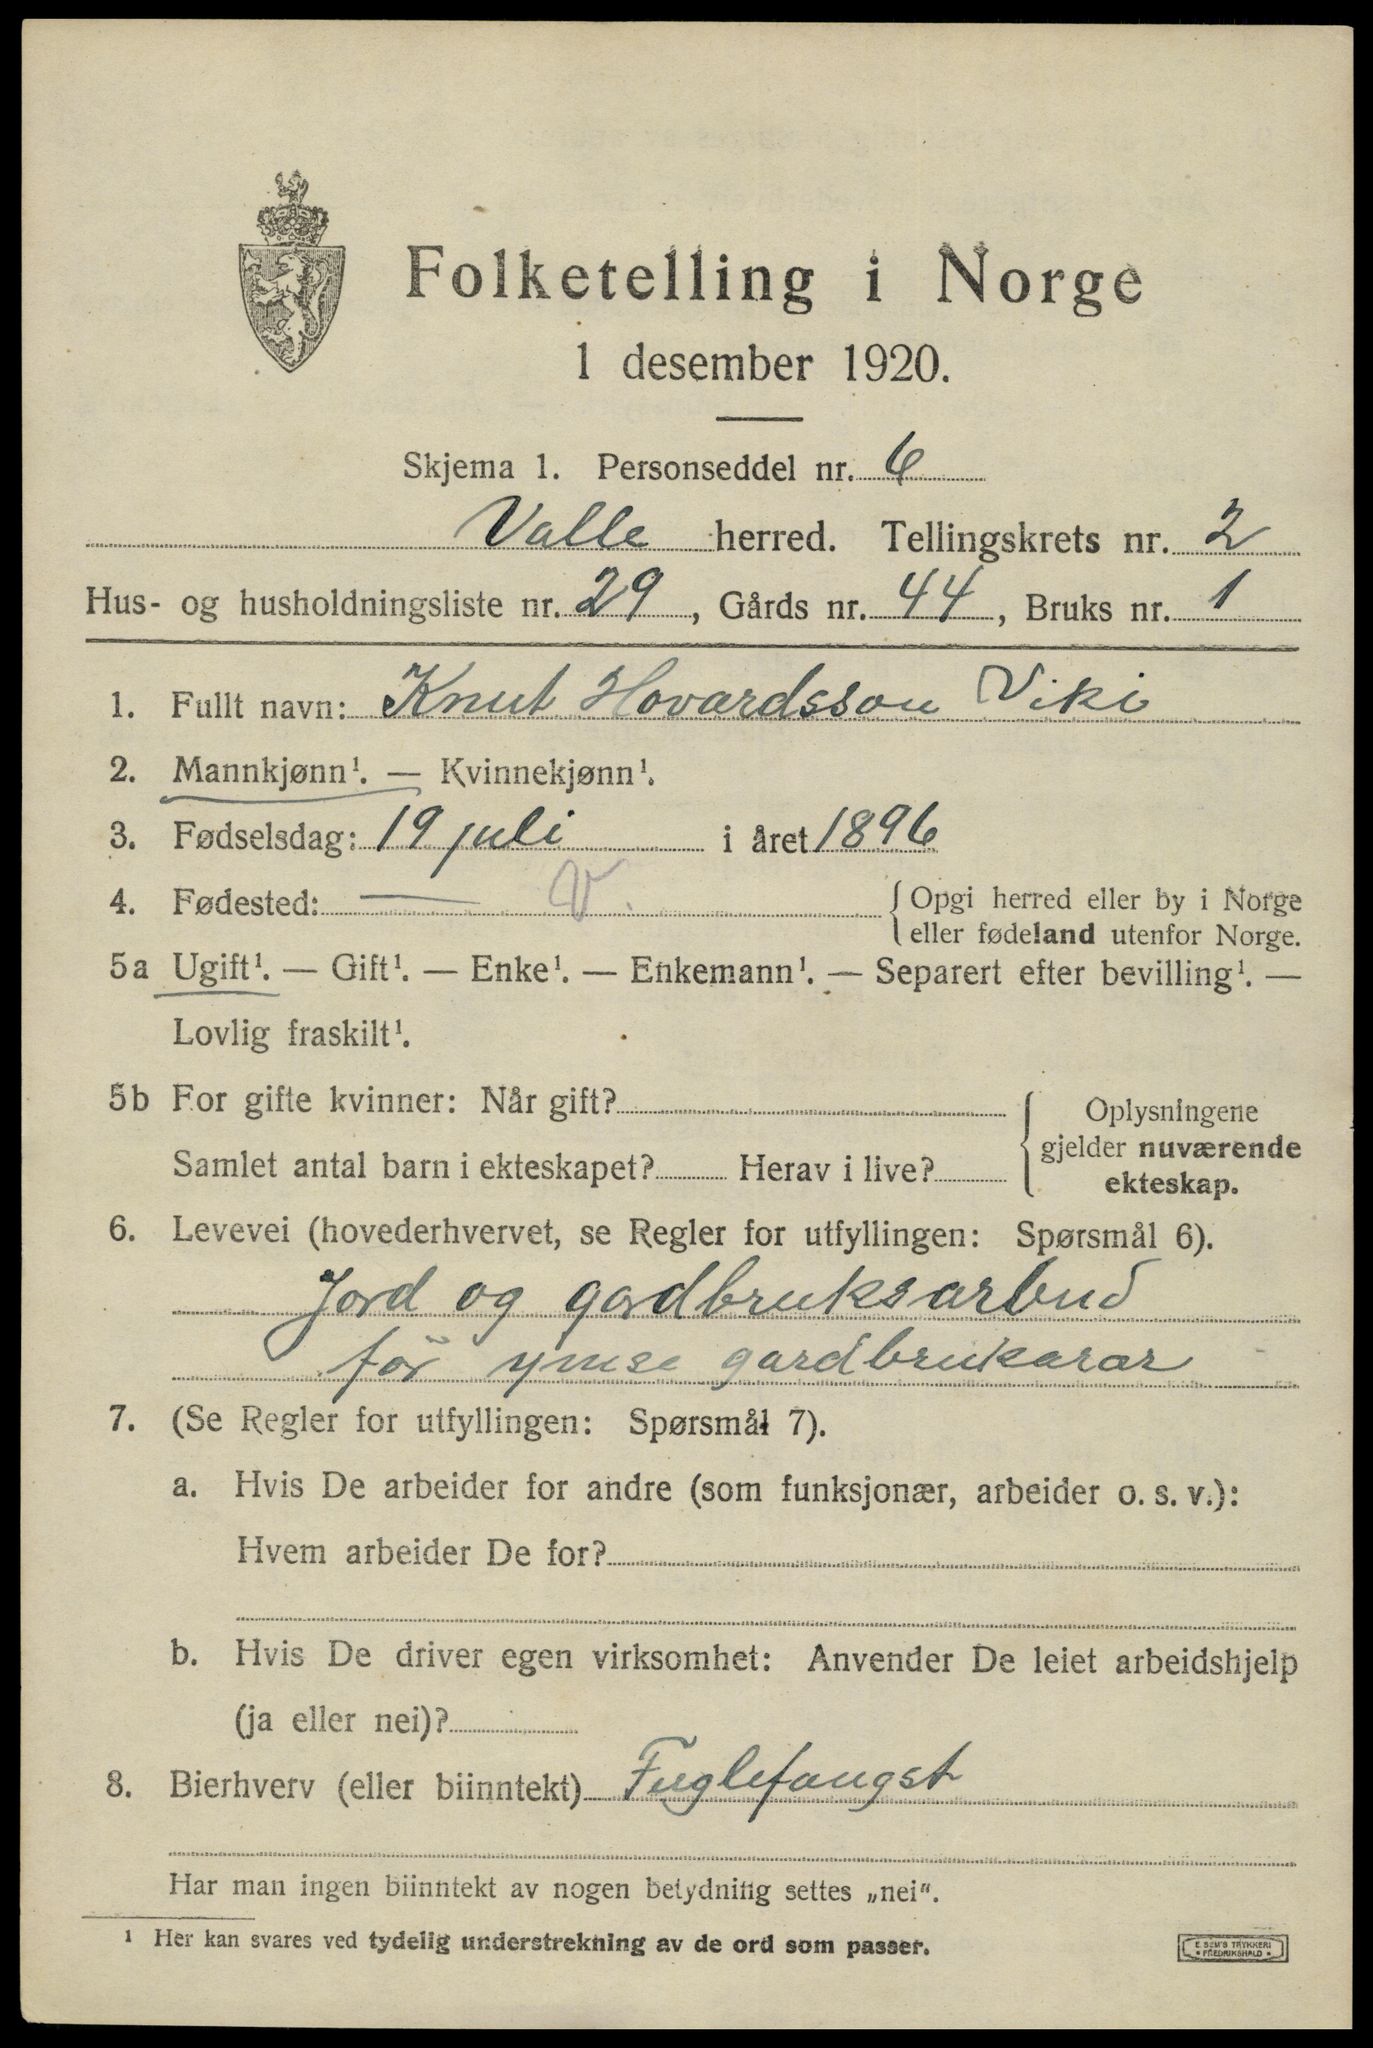 Folketelling i Norge
1 desember 1920.
Skjema 1. Personseddel nr. 6
Valle herred. Tellingskrets nr. 2
Hus- og husholdningsliste nr. 29, Gårds nr. 44, Bruks nr. 1
1. Fullt navn: Knut Hovardsson Viki
2. Mannkjønn¹. — Kvinnekjønn¹.
3. Fødselsdag: 19 juli i året 1896
4. Fødested: — V. { Opgi herred eller by i Norge
eller fødeland utenfor Norge.
5a Ugift¹. — Gift¹. — Enke¹. — Enkemann¹. — Separert efter bevilling¹. —
Lovlig fraskilt¹.
5b For gifte kvinner: Når gift?
Samlet antal barn i ekteskapet? Herav i live?
{ Oplysningene
gjelder nuværende
ekteskap.
6. Levevei (hovederhvervet, se Regler for utfyllingen: Spørsmål 6).
Jord og gardbruksarbeid
för ymse gardbrukarar
7. (Se Regler for utfyllingen: Spørsmål 7).
a. Hvis De arbeider for andre (som funksjonær, arbeider o. s. v.):
Hvem arbeider De for?
b. Hvis De driver egen virksomhet: Anvender De leiet arbeidshjelp
(ja eller nei)?
8. Bierhverv (eller biinntekt) Fuglefangst
Har man ingen biinntekt av nogen betydning settes „nei“.
¹ Her kan svares ved tydelig understrekning av de ord som passer.
E. SEM'S TRYKKERI
FREDRIKSHALD